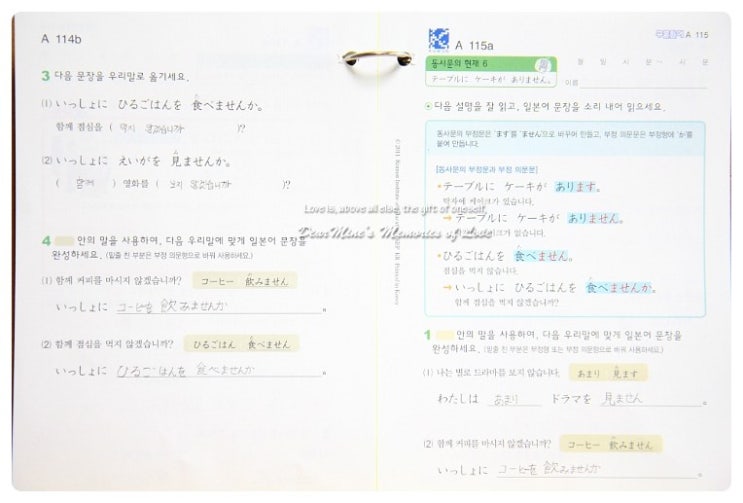 A 114b
3 다음 문장을 우리말로 옮기세요.
(1) いっしょに ひるごはんを 食べませんか。
함께 점심을 ( 먹지 않겠습니까 )?
(2) いっしょに えいがを 見ませんか。
( 함께 ) 영화를 ( 보지 않겠습니까 )?
4 안의 말을 사용하여, 다음 우리말에 맞게 일본어 문장을
완성하세요. (밑줄 친 부분은 부정 의문형으로 바꿔 사용하세요.)
(1) 함께 커피를 마시지 않겠습니까? コーヒー 飲みません
いっしょに コーヒーを 飲みませんか。
(2) 함께 점심을 먹지 않겠습니까? ひるごはん 食べません
いっしょに ひるごはんを 食べませんか。
Love is, above all else, the gift of oneself.
DearMine's Memories of Love
A 115a
A 115
동사문의 현재 6
テーブルに ケーキが ありません。
월 일 시 분 ~ 시 분
이름
다음 설명을 잘 읽고, 일본어 문장을 소리 내어 읽으세요.
동사문의 부정문은 'ます'를 'ません'으로 바꾸어 만들고, 부정 의문문은 부정형에 'か'를
붙여 만듭니다.
[동사문의 부정문과 부정 의문문]
• テーブルに ケーキが あります。
탁자에 케이크가 있습니다.
→ テーブルに ケーキが ありません。
케이크가 없습니다.
• ひるごはんを 食べません。
점심을 먹지 않습니다.
→ いっしょに ひるごはんを 食べませんか。
함께 점심을 먹지 않겠습니까?
1 안의 말을 사용하여, 다음 우리말에 맞게 일본어 문장을
완성하세요. (밑줄 친 부분은 부정형 또는 부정 의문형으로 바꿔 사용하세요.)
(1) 나는 별로 드라마를 보지 않습니다. あまり 見ます
わたしは あまり ドラマを 見ません。
(2) 함께 커피를 마시지 않겠습니까? コーヒー 飲みません
いっしょに コーヒーを 飲みませんか。